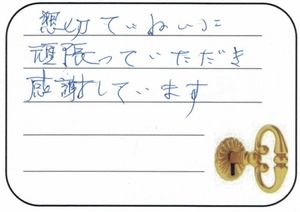 懇切ていねいに
頑張っていただき
感謝しています